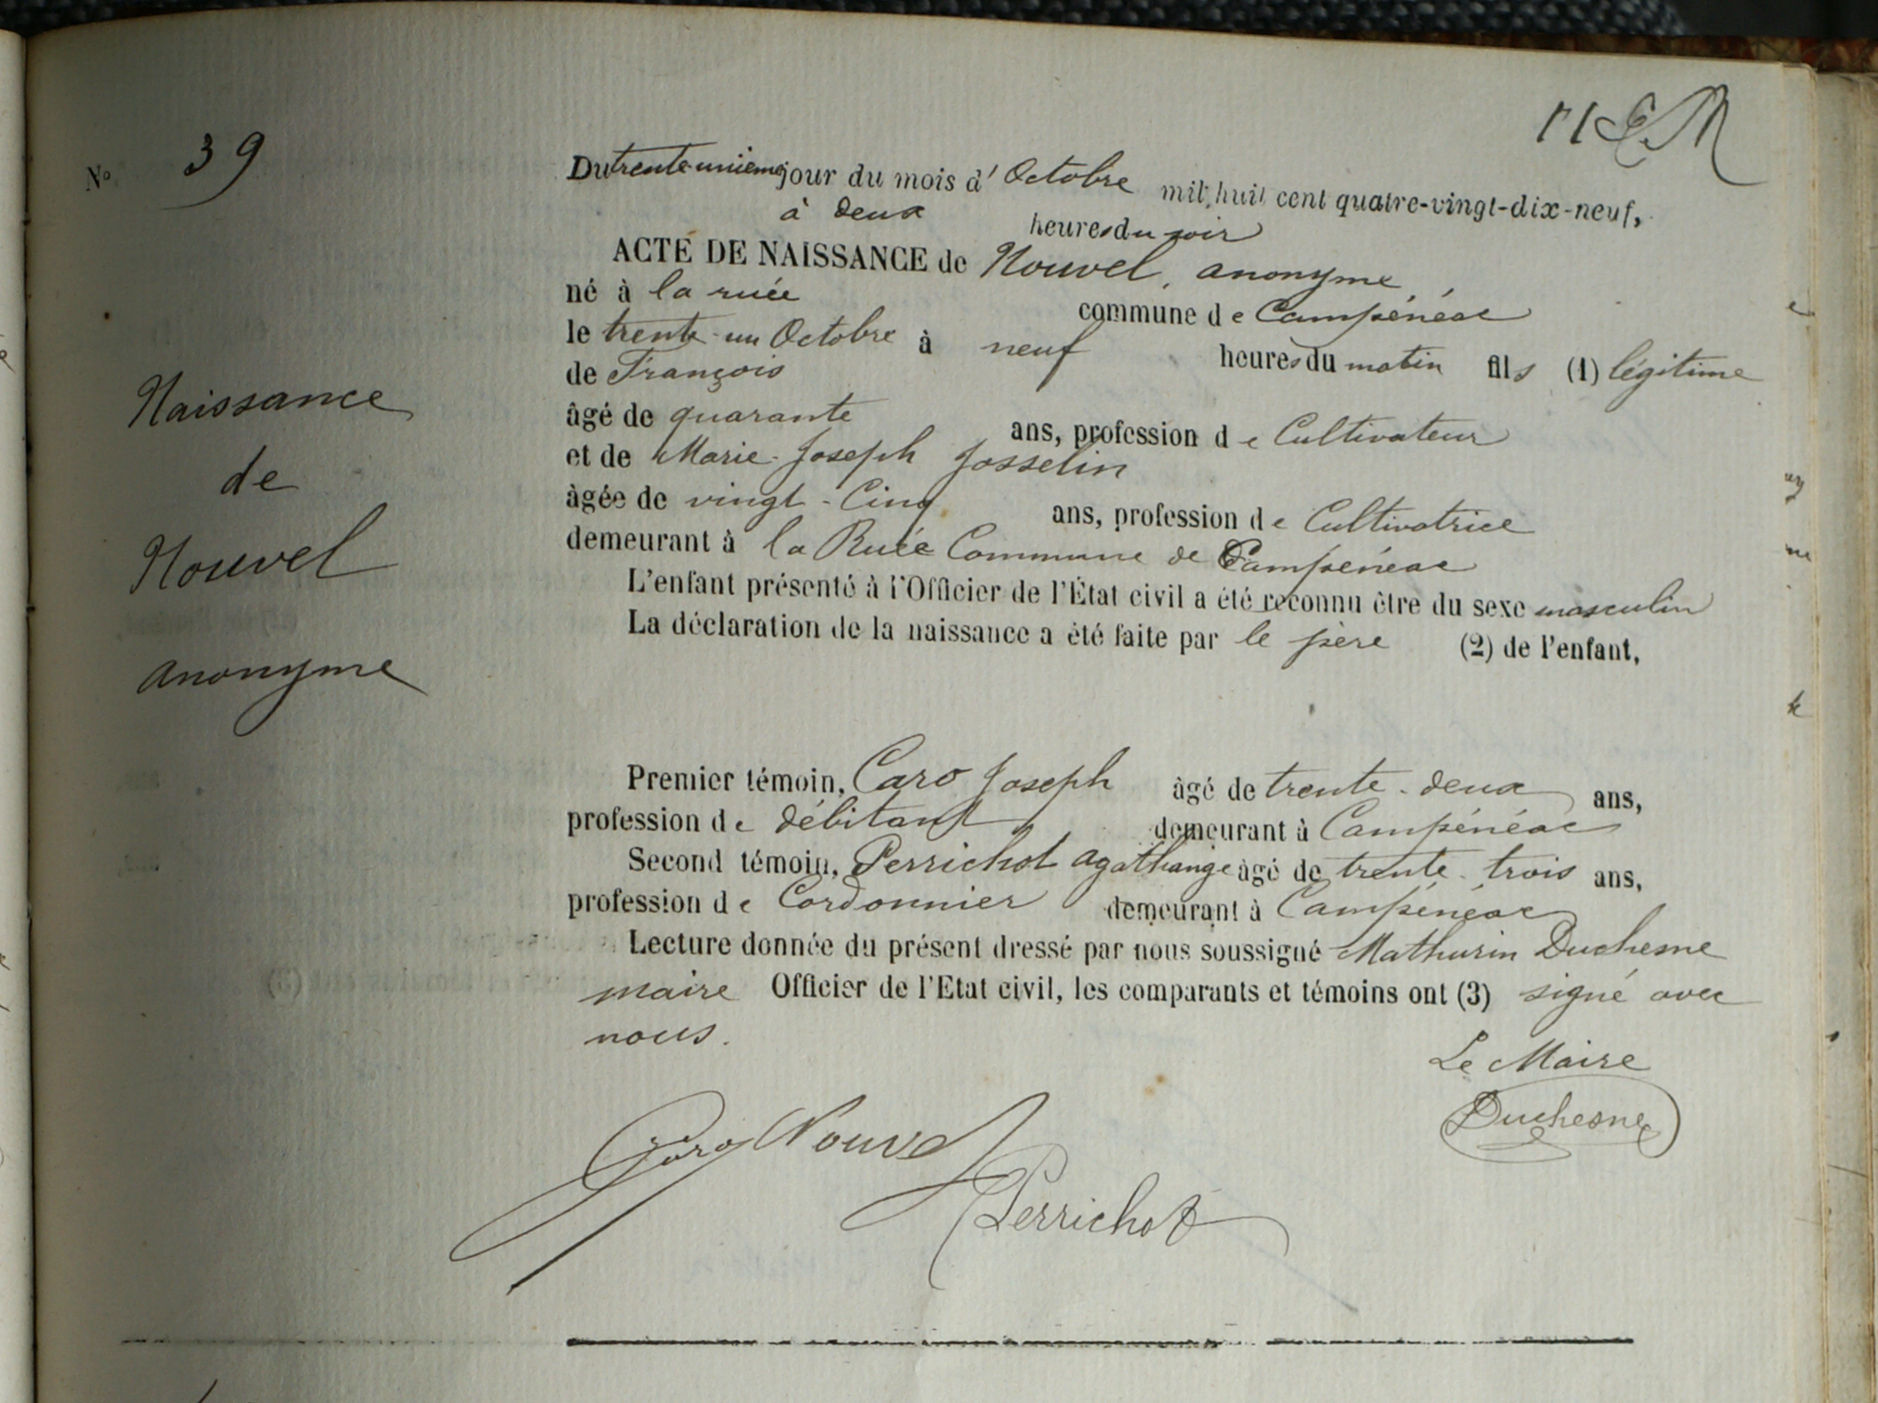 No 39
Du trente-unième jour du mois d'Octobre mil huit cent quatre-vingt-dix-neuf,
à deux heures du soir
ACTE DE NAISSANCE de Nouvel, anonyme
né à la ruée commune de Campénéac
le trente-un Octobre à neuf heures du matin fils (1) légitime
de François
âgé de quarante ans, profession de Cultivateur
et de Marie-Joseph Josselin
âgée de vingt-Cinq ans, profession de Cultivatrice
demeurant à la Ruée Commune de Campénéac
L'enfant présenté à l'Officier de l'État civil a été reconnu être du sexe masculin
La déclaration de la naissance a été faite par le père (2) de l'enfant,
Naissance
de
Nouvel
anonyme
Premier témoin, Caro Joseph âgé de trente-deux ans,
profession de débitant demeurant à Campénéac
Second témoin, Perrichot agathange âgé de trente-trois ans,
profession de Cordonnier demeurant à Campénéac
Lecture donnée du présent dressé par nous soussigné Mathurin Duchesne
maire Officier de l'Etat civil, les comparants et témoins ont (3) signé avec
nous.
Le Maire
Duchesne
Caro Nouvel
Perrichot